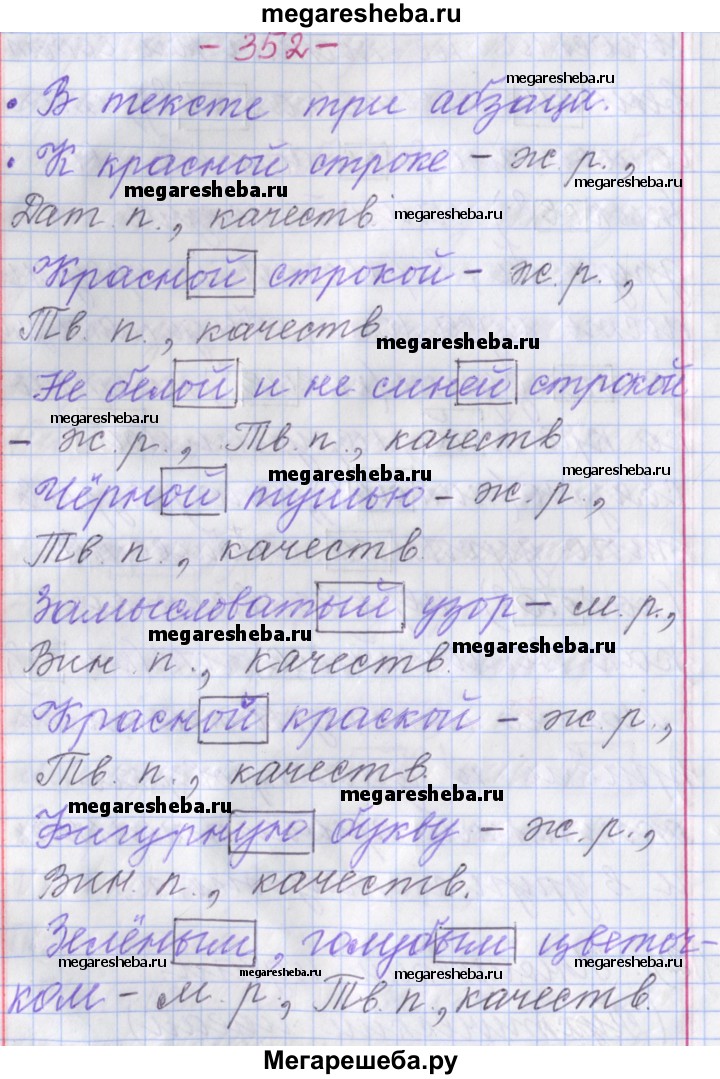 megaresheba.ru
- 352 -
megaresheba.ru
• В тексте три абзаца.
• К красной строке - ж.р.,
megaresheba.ru
Дат. п., качеств.
megaresheba.ru
Красной строкой - ж.р.,
Тв. п., качеств.
megaresheba.ru
Не белой и не синей строкой
megaresheba.ru
- ж.р., Тв. п., качеств
megaresheba.ru
megaresheba.ru
Чёрной тушью - ж.р.,
Тв. п., качеств.
Замысловатый узор - м.р.,
megaresheba.ru
megaresheba.ru
Вин. п., качеств.
Красной краской - ж.р.,
Тв. п., качеств.
megaresheba.ru
megaresheba.ru
Фигурную букву - ж.р.,
Вин. п., качеств.
Зелёным, голубым цветоч-
megaresheba.ru
megaresheba.ru
megaresheba.ru
megaresheba.ru
ком - м.р., Тв. п., качеств.
Мегарешеба.ру